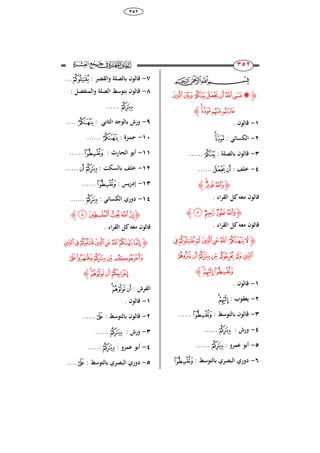 ٣٥٢
٣٥٢
﴿ عَسَى ٱللَّهُ أَن يَجْعَلَ بَيْنَكُمْ وَبَيْنَ ٱلَّذِينَ
عَادَيْتُم مِّنْهُم مَّوَدَّةً ﴾
١- قالون .
٢- الكسائي : مَّوَدَّةً
٣- قالون بالصلة : بَيْنَكُمْ ......
٤- خلف : أَن يَجْعَلَ ......
﴿ وَٱللَّهُ قَدِيرٌ ﴾
قالون معه كل القراء .
﴿ وَٱللَّهُ غَفُورٌ رَّحِيمٌ ﴾
قالون معه كل القراء .
﴿ لَّا يَنْهَىٰكُمُ ٱللَّهُ عَنِ ٱلَّذِينَ لَمْ يُقَٰتِلُوكُمْ فِى
ٱلدِّينِ وَلَمْ يُخْرِجُوكُم مِّن دِيَٰرِكُمْ أَن تَبَرُّوهُمْ
وَتُقْسِطُوٓا۟ إِلَيْهِمْ ﴾
١- قالون .
٢- يعقوب : إِلَيْهُمْ
٣- قالون بالتوسط : وَتُقْسِطُوٓا۟ ......
٤- ورش : دِيَٰرِكُمْ ......
٥- أبو عمرو : دِيَٰرِكُمْ ......
٦- دوري البصري بالتوسط : وَتُقْسِطُوٓا۟
٧- قالون بالصلة والقصر : يُقَٰتِلُوكُمْ ...
٨- قالون بتوسط الصلة والمنفصل :
دِيَٰرِكُمْ ......
٩- ورش بالوجه الثاني : يَنْهَىٰكُمُ ....
١٠- حمزة : يَنْهَىٰكُمُ ......
١١- أبو الحارث : وَتُقْسِطُوٓا۟ ......
١٢- خلف بالسكت : دِيَٰرِكُمْ أَن ......
١٣- إدريس : وَتُقْسِطُوٓا۟ ......
١٤- دوري الكسائي : دِيَٰرِكُمْ ......
﴿ إِنَّ ٱللَّهَ يُحِبُّ ٱلْمُقْسِطِينَ ﴿٨﴾ ﴾
قالون معه كل القراء .
﴿ إِنَّمَا يَنْهَىٰكُمُ ٱللَّهُ عَنِ ٱلَّذِينَ قَٰتَلُوكُمْ فِى ٱلدِّينِ
وَأَخْرَجُوكُم مِّن دِيَٰرِكُمْ وَظَٰهَرُوا۟ عَلَىٰٓ
إِخْرَاجِكُمْ أَن تَوَلَّوْهُمْ ﴾
الفرش : أَن تَوَلَّوْهُمْ
١- قالون .
٢- قالون بالتوسط : عَلَىٰٓ ......
٣- ورش : دِيَٰرِكُمْ ......
٤- أبو عمرو : دِيَٰرِكُمْ ......
٥- دوري البصري بالتوسط : عَلَىٰٓ ....